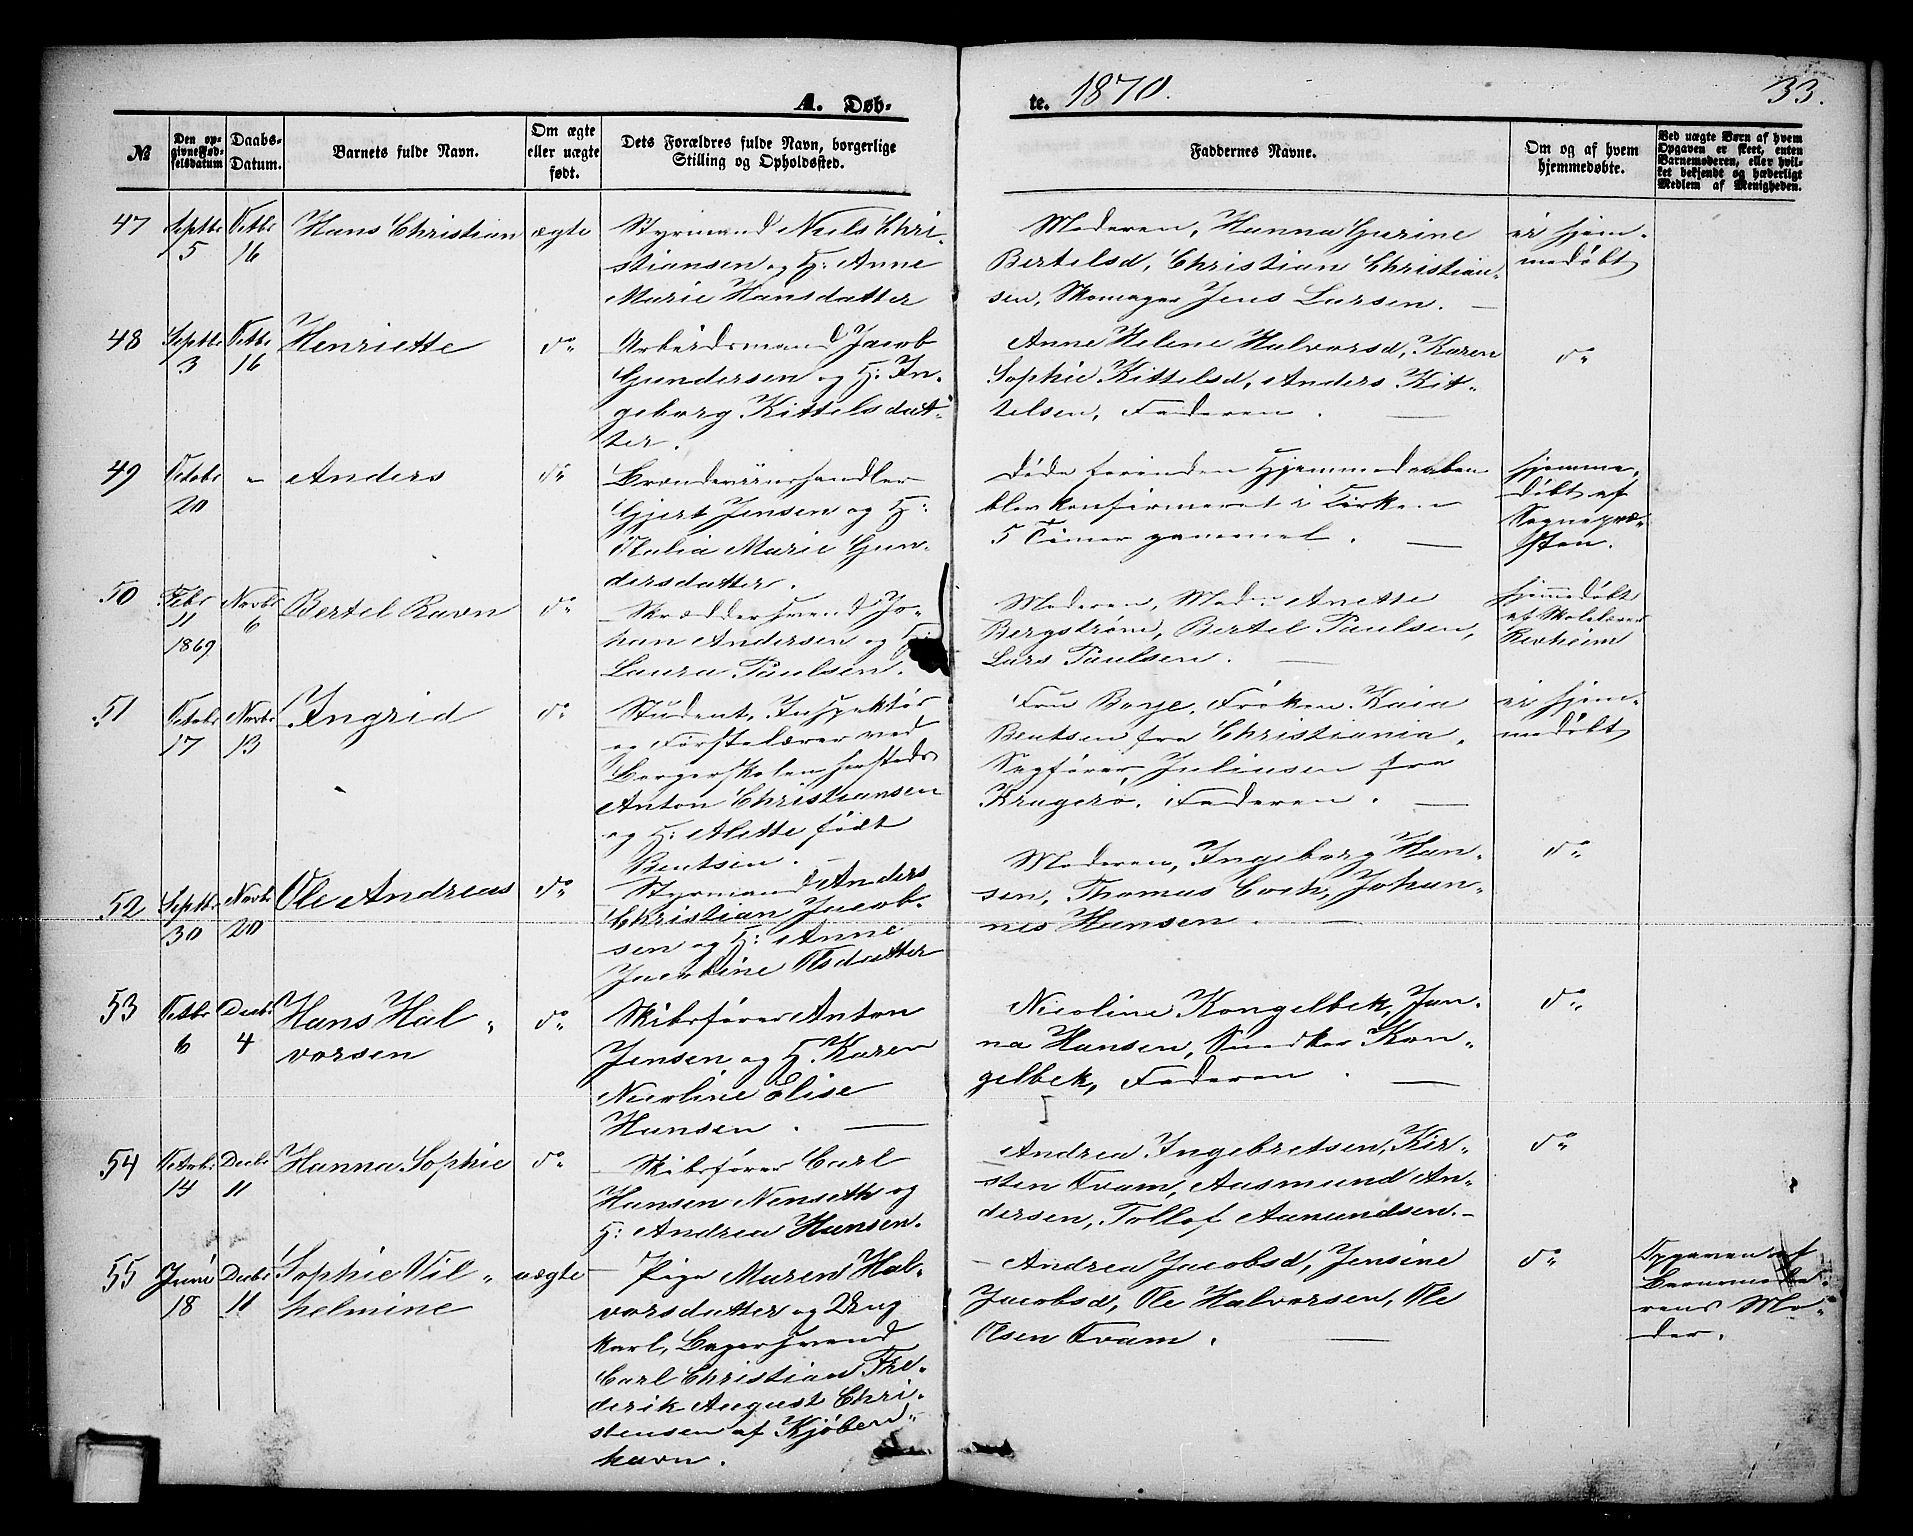 A. Døb-
te. 1870.
33.
№
Den op-
givne Fød-
selsdatum
Daabs-
Datum.
Barnets fulde Navn.
Om ægte
eller uægte
født.
Dets Forældres fulde Navn, borgerlige
Stilling og Opholdssted.
Faddernes Navne.
Om og af hvem
hjemmedøbte.
Ved uægte Børn af hvem
Opgaven er skeet, enten
Barnemoderen, eller hvil-
ket bekjendt og hæderligt
Medlem af Menigheden.
47
Septbr
5
Octbr
16
Hans Christian
ægte
Styrmand Niels Chri-
stiansen og H: Anne
Marie Hansdatter
Moderen, Hanna Gurine
Bertelsd, Christian Christian-
sen, Skomager Jens Larsen. —
er hjem-
medøbt
48
Septbr
3
Octbr
16
Henriette
do
Arbeidsmand Jacob
Gundersen og H: In-
geborg Kittelsdat-
ter.
Anne Helene Halvorsd, Karen
Sophie Kittelsd, Anders Kit-
telsen, Faderen. —
do
49
Octobr
20
-
Anders
do
Brændeviinshandler
Gjert Jensen og H:
Thalia Marie Gun-
dersdatter.
Døde forinden Hjemmedaaben
blev konfirmeret i Kirken
5 Timer gammel. —
Hjemme-
døbt af
Sognepræ-
sten.
50
Febr
11
1869
Novbr
6
Bertel Ravn
do
Skrædersvend Jo-
han Andersen og H:
Laura Paulsen.
Moderen, Mad: Anette
Bergstrøm, Bertel Paulsen,
Lars Paulsen. —
Hjemmedøbt
af Skolelærer
51
Octobr
17
Novbr
13
Ingrid
do
Student, Inspektør
og Førstelærer ved
Borgerskolen hersteds
Anton Christiansen
og H: Alette født
Bentsen.
Fru Borge, Frøken Kaia
Bentsen fra Christiania,
Sagfører Juliusen fra
Kragerø, Faderen. —
er hjem-
medøbt
52
Septbr
30
Novbr
20
Ole Andreas
do
Styrmand Anders
Christian Jacob-
sen og H: Anne
Jacobine Olsdatter
Moderen, Ingeborg Han-
sen, Thomas Coch, Johan-
nes Hansen. —
do
53
Octbr
6
Decbr
4
Hans Hal-
vorsen
do
Skibsfører Anton
Jensen og H. Karen
Nicoline Elise
Hansen. —
Nicoline Kongelbek, Jan-
na Hansen, Snedker Kon-
gelbek, Faderen. —
do
54
Octobr
14
Decbr
11
Hanna Sophie
do
Skibsfører Carl
Hansen Nenseth og
H: Andrea Hansen.
Andrea Ingebretsen, Kir-
sten Tvam, Aasmund An-
dersen, Tollof Aanundsen. -
do
55
Juni
18
Decbr
11
Sophie Vil-
helmine
uægte
Pige Maren Hal-
vorsdatter og Ung
karl, Bagersvend
Carl Christian Fre-
derik August Chri-
stensen af Kjøben-
havn.
Andrea Jacobsd, Jensine
Jacobsd, Ole Halvorsen, Ole
Olsen Tvam. —
do
Opgaven af
Barnemode-
rens Mo-
der.